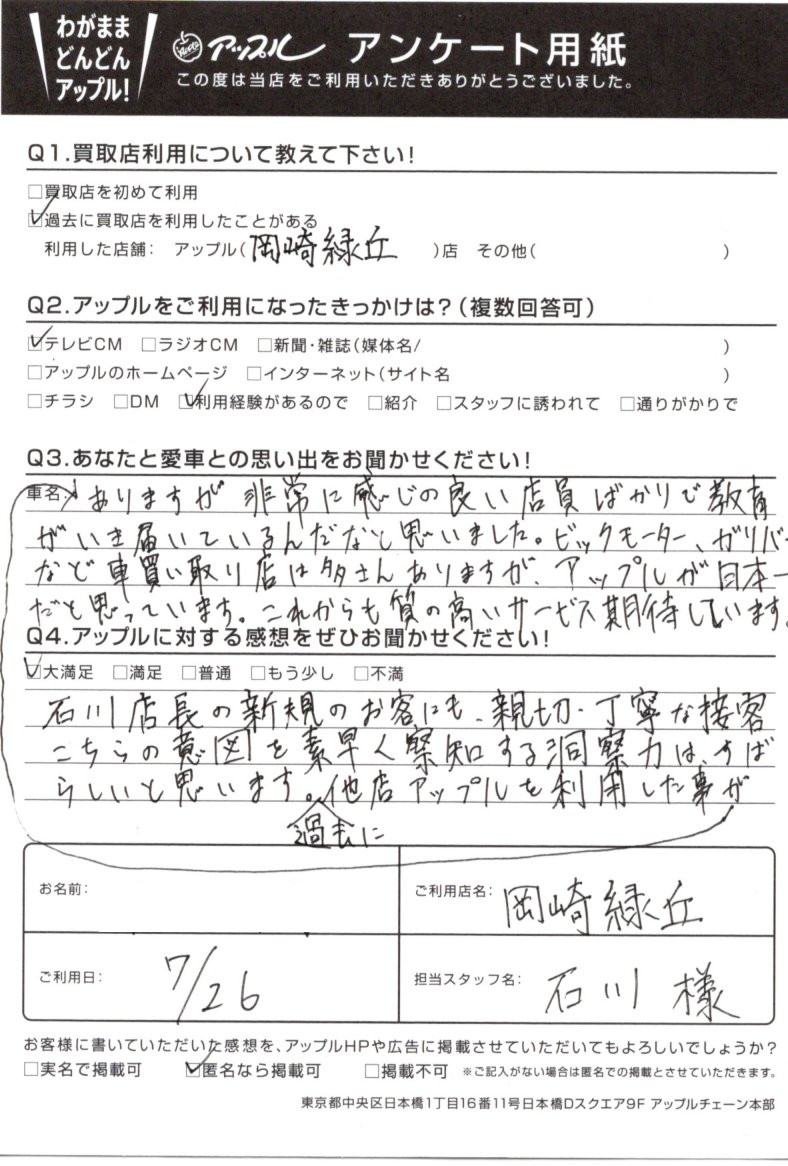 わがまま
どんどん
アップル!
アップル アンケート用紙
この度は当店をご利用いただきありがとうございました。
Q1.買取店利用について教えて下さい!
□買取店を初めて利用
☑過去に買取店を利用したことがある
利用した店舗: アップル(岡崎緑丘 )店 その他( )
Q2.アップルをご利用になったきっかけは?(複数回答可)
☑テレビCM □ラジオCM □新聞・雑誌(媒体名/ )
□アップルのホームページ □インターネット(サイト名 )
□チラシ □DM ☑利用経験があるので □紹介 □スタッフに誘われて □通りがかりで
Q3.あなたと愛車との思い出をお聞かせください!
車名: ありますが 非常に感じの良い店員ばかりで教育
がいき届いているんだなと思いました。ビックモーター、ガリバー
など車買い取り店は多さんありますが、アップルが日本一
だと思っています。これからも質の高いサービス期待しています。
Q4.アップルに対する感想をぜひお聞かせください!
☑大満足 □満足 □普通 □もう少し □不満
石川店長の新規のお客にも、親切・丁寧な接客
こちらの意図を素早く察知する洞察力は、すば
らしいと思います。他店アップルを利用した事が
過去に
お名前:
ご利用店名: 岡崎緑丘
ご利用日: 7/26
担当スタッフ名: 石川 様
お客様に書いていただいた感想を、アップルHPや広告に掲載させていただいてもよろしいでしょうか?
□実名で掲載可 ☑匿名なら掲載可 □掲載不可 ※ご記入がない場合は匿名での掲載とさせていただきます。
東京都中央区日本橋1丁目16番11号日本橋Dスクエア9F アップルチェーン本部